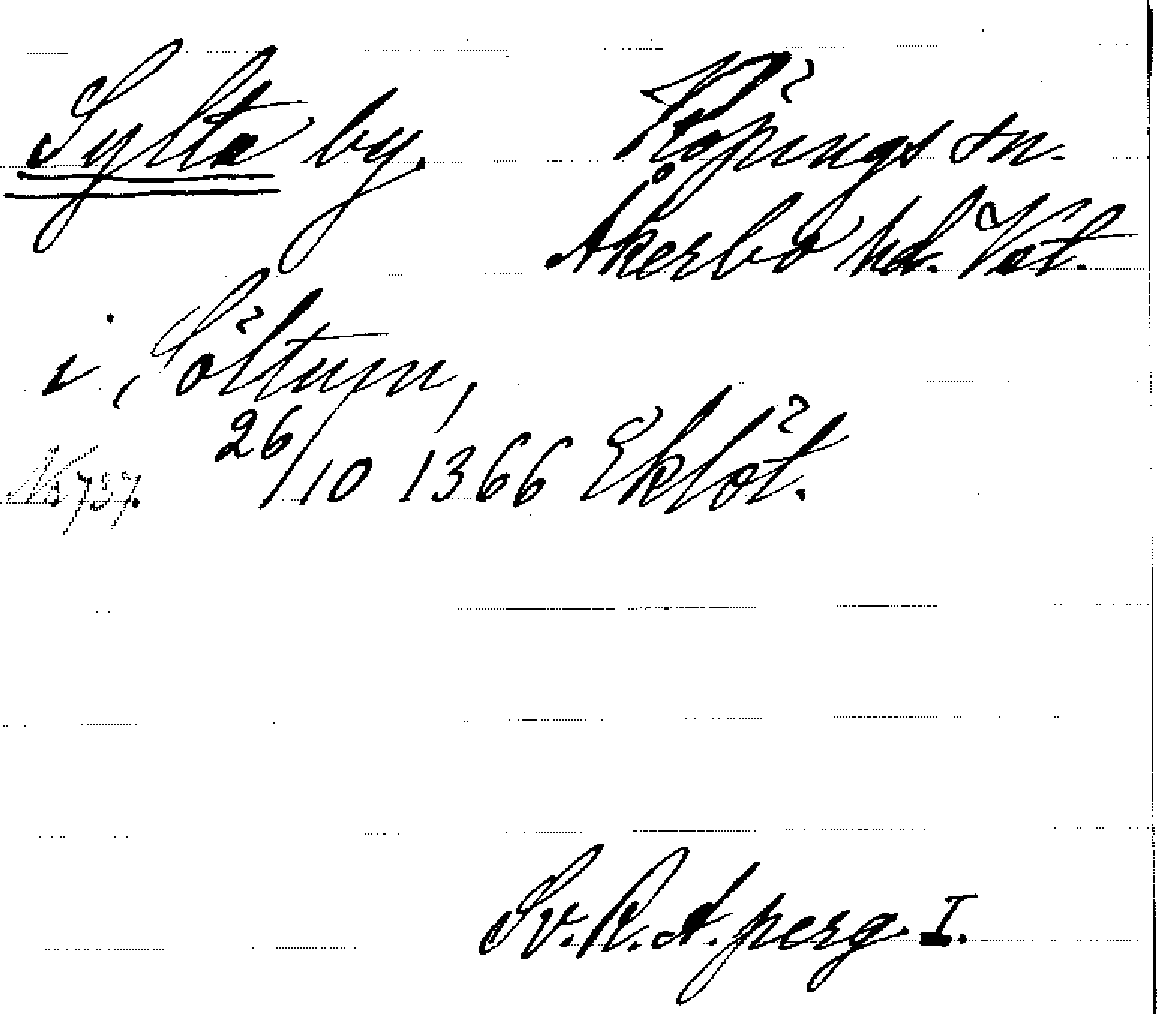 Sylta by.
Köpings sn.
Åkerbo hd. Vstm.
i, Söltum,
26/10 1366 Eklöt.
No 737.
Sv. R. A. perg. I.